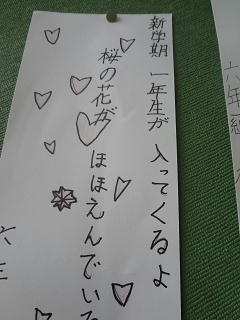 新学期 一年生が 入ってくるよ
桜の花が ほほえんでいる
六年